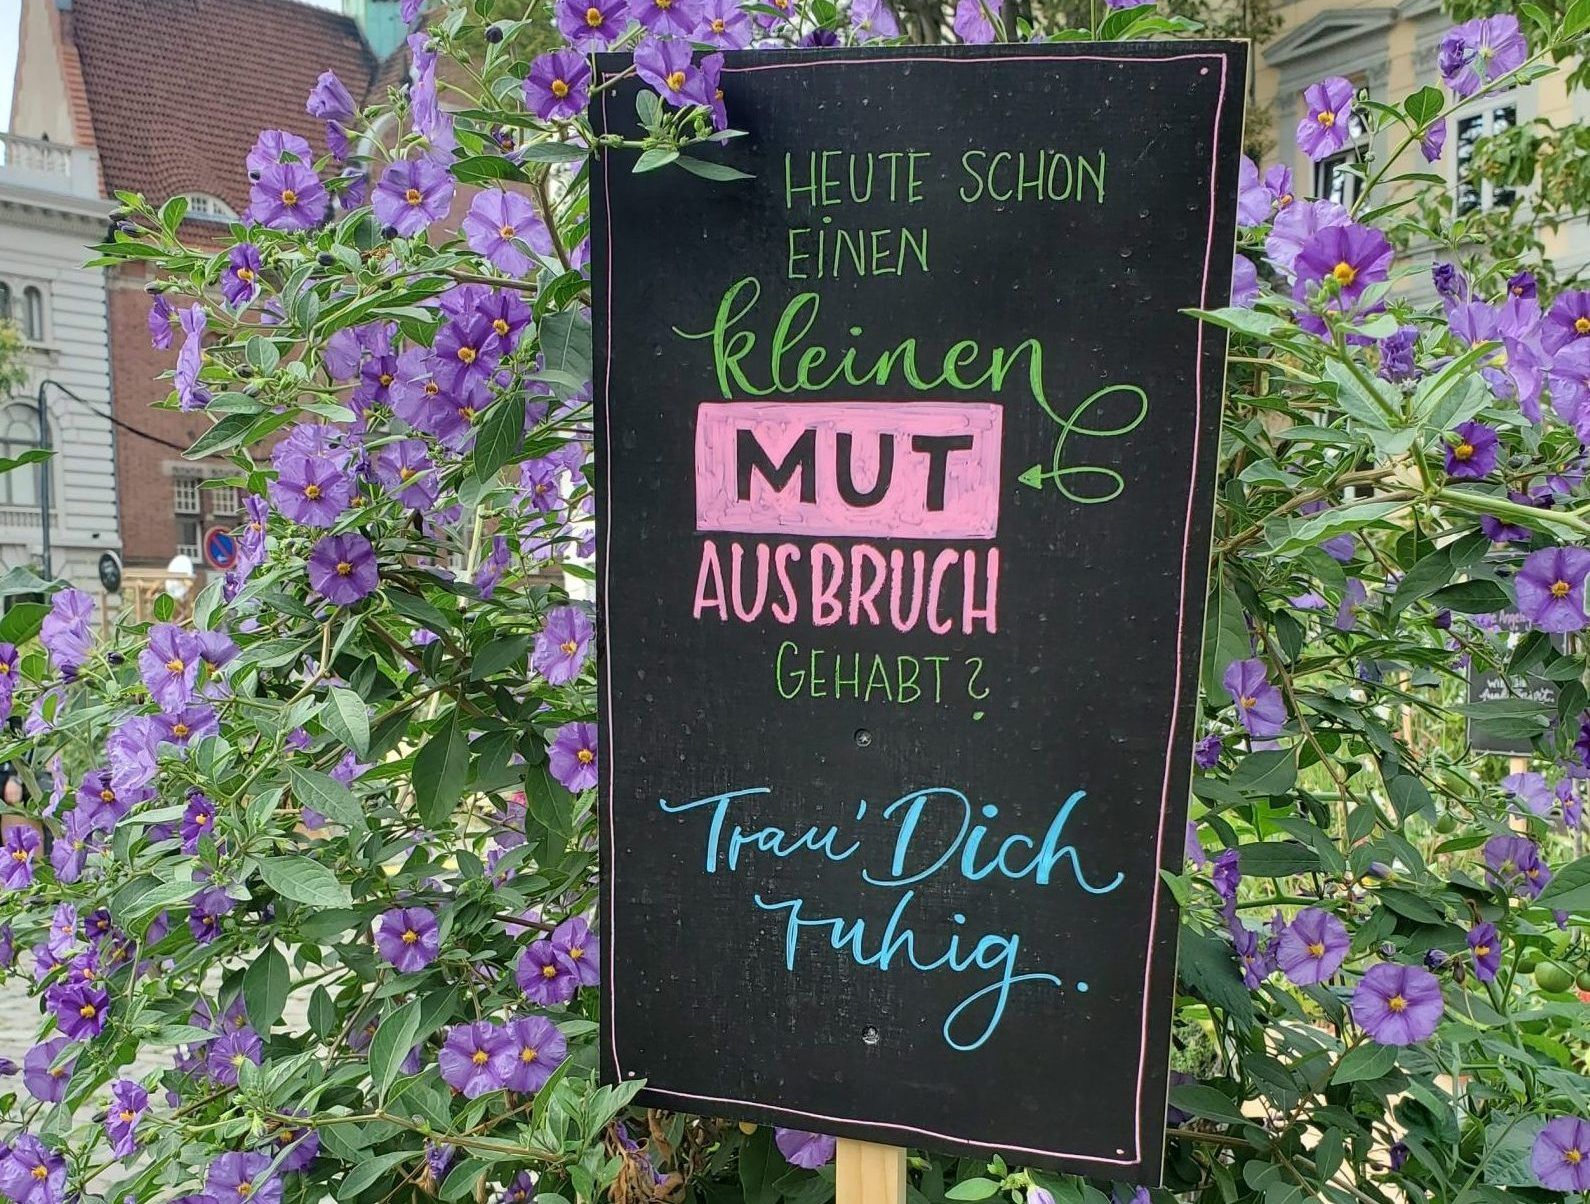 HEUTE SCHON
EINEN
kleinen
MUT
AUSBRUCH
GEHABT?
Trau' Dich
ruhig.